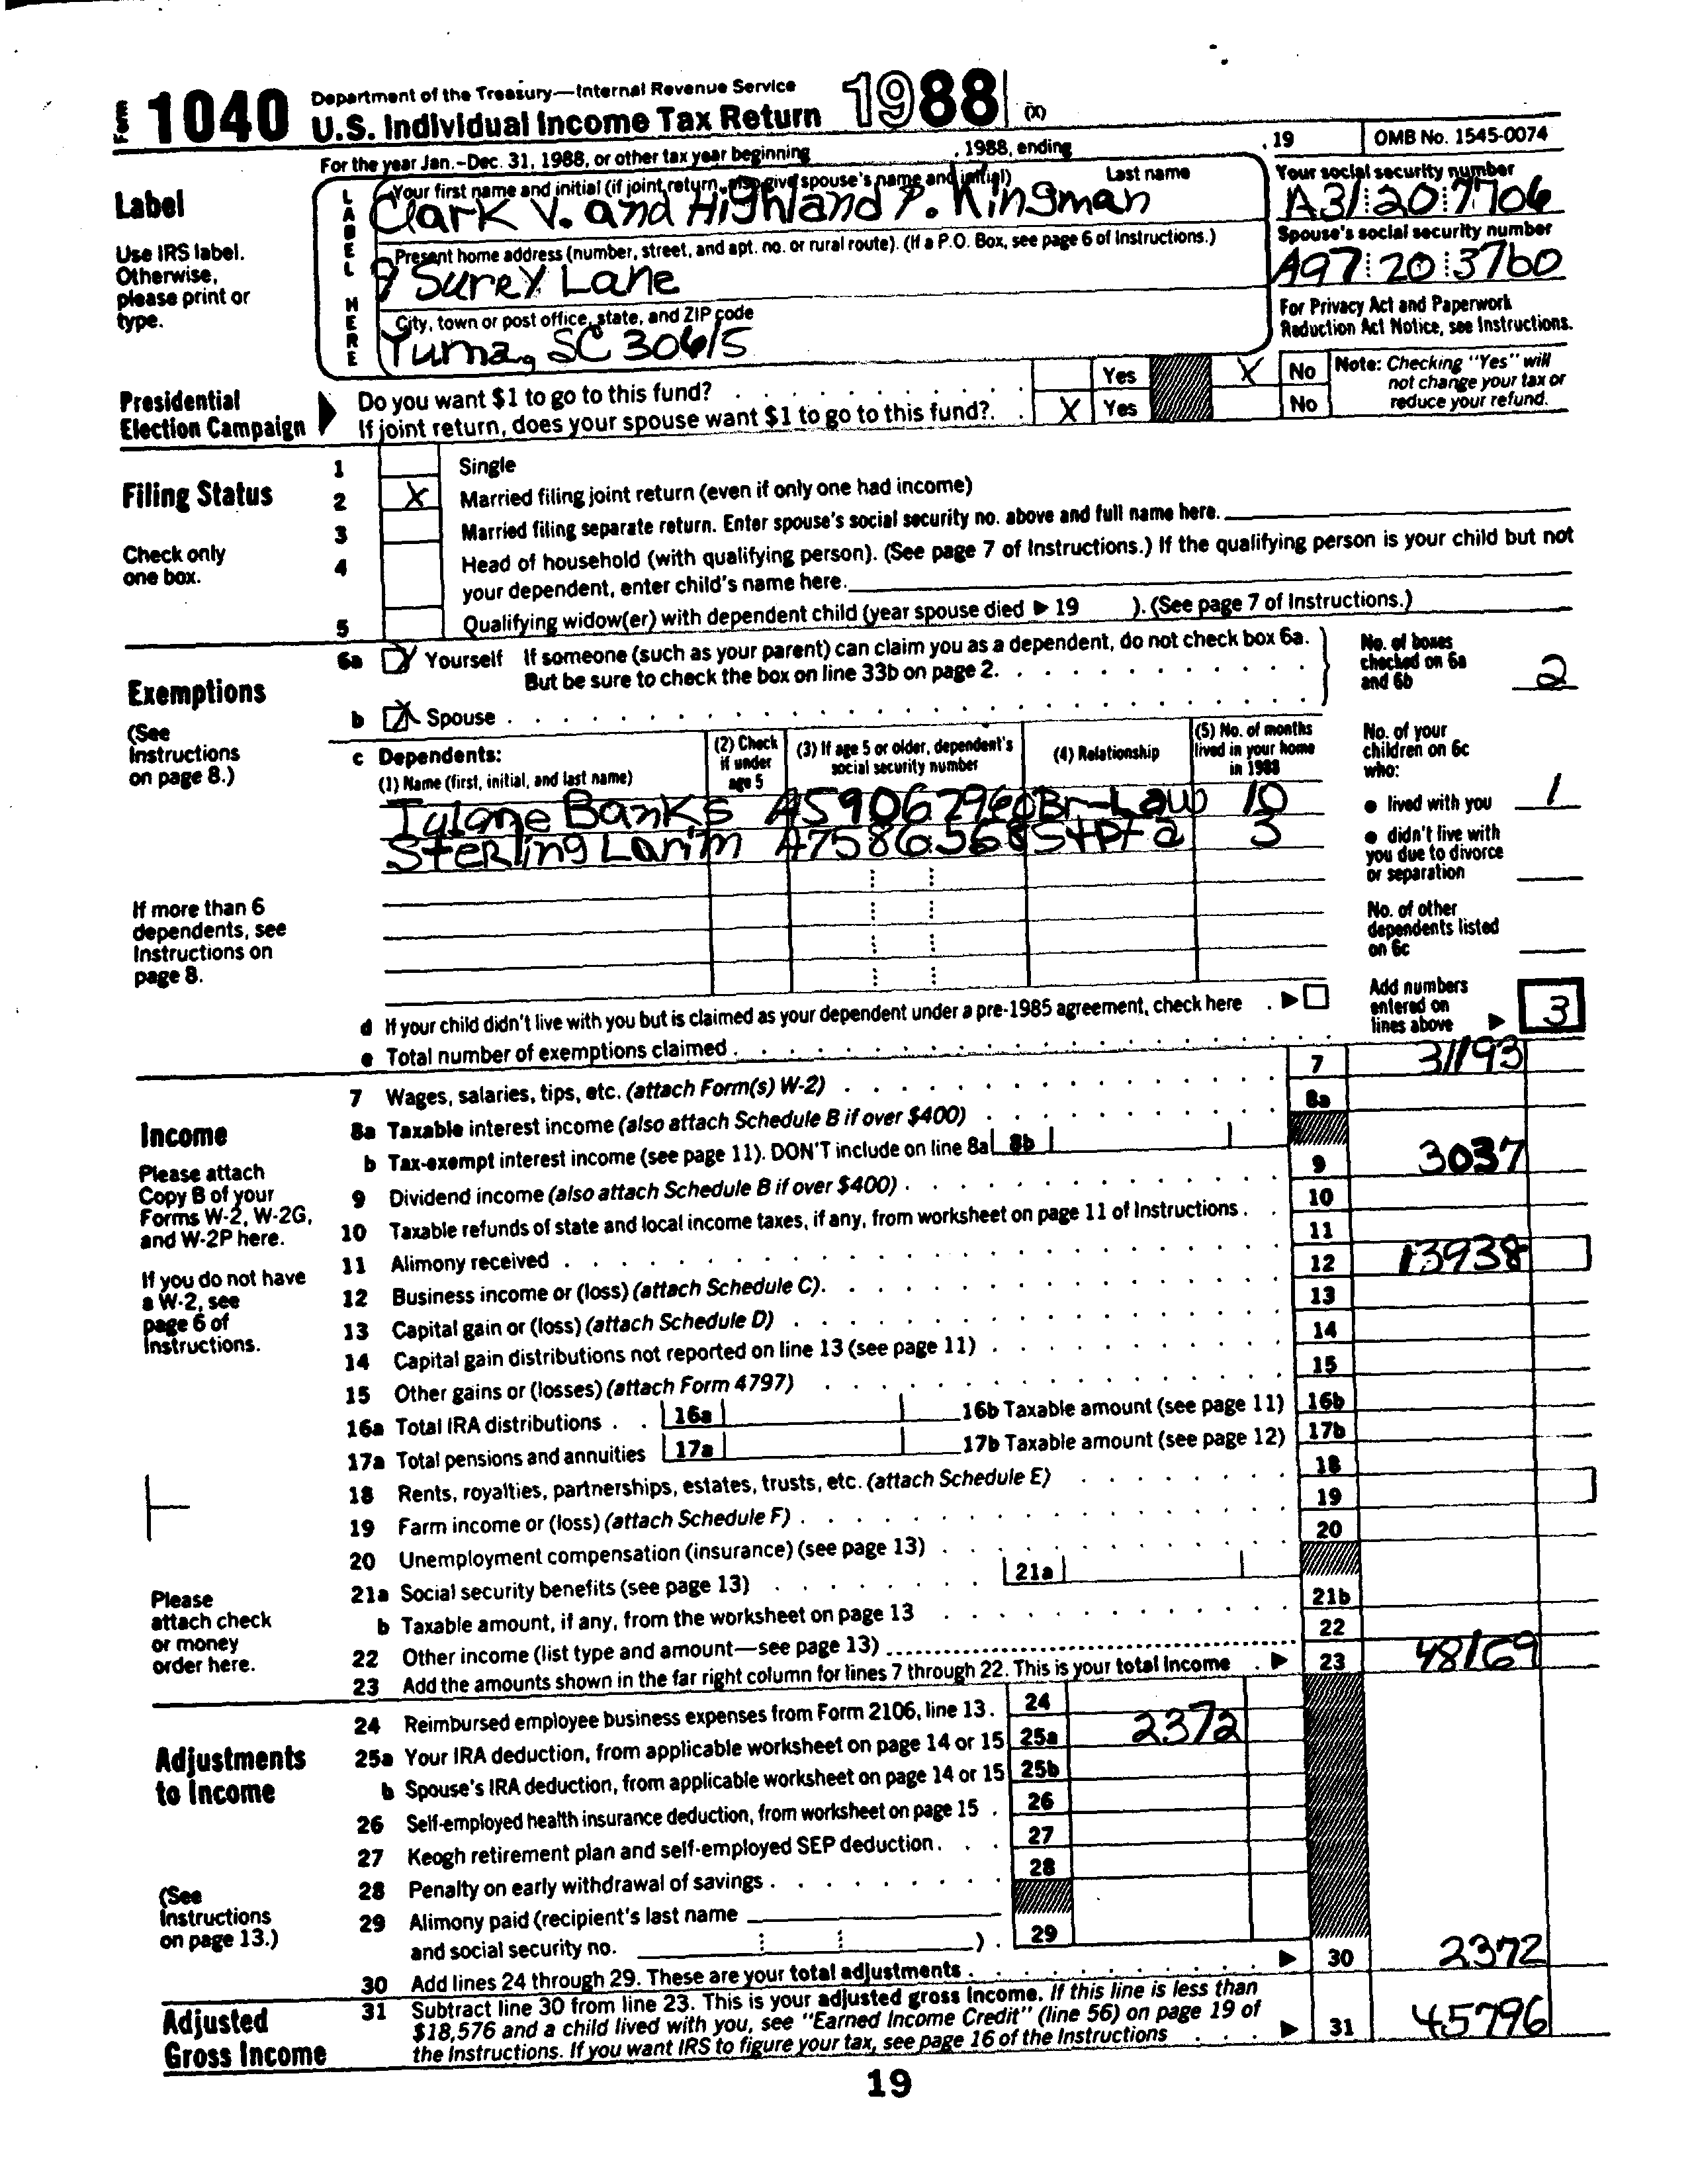 Form 1040 Department of the Treasury—Internal Revenue Service
U.S. Individual Income Tax Return 1988 (X)
For the year Jan.-Dec. 31, 1988, or other tax year beginning , 1988, ending , 19 OMB No. 1545-0074
Label
Use IRS label. Otherwise, please print or type.
LABEL HERE
Your first name and initial (if joint return, also give spouse's name and initial) Last name
Clark V. and Highland P. Kingman
Your social security number
A31 20 7706
Present home address (number, street, and apt. no. or rural route). (If a P.O. Box, see page 6 of Instructions.)
7 Surey Lane
Spouse's social security number
A97 20 3760
City, town or post office, state, and ZIP code
Yuma, SC 30615
For Privacy Act and Paperwork Reduction Act Notice, see Instructions.
Presidential Election Campaign
Do you want $1 to go to this fund? Yes X No
If joint return, does your spouse want $1 to go to this fund? X Yes No
Note: Checking "Yes" will not change your tax or reduce your refund.
Filing Status
Check only one box.
1 Single
2 X Married filing joint return (even if only one had income)
3 Married filing separate return. Enter spouse's social security no. above and full name here.
4 Head of household (with qualifying person). (See page 7 of Instructions.) If the qualifying person is your child but not
your dependent, enter child's name here.
5 Qualifying widow(er) with dependent child (year spouse died ▶ 19 ). (See page 7 of Instructions.)
Exemptions
(See Instructions on page 8.)
6a X Yourself If someone (such as your parent) can claim you as a dependent, do not check box 6a.
But be sure to check the box on line 33b on page 2.
b X Spouse
No. of boxes checked on 6a and 6b 2
c Dependents:
(1) Name (first, initial, and last name)
(2) Check if under age 5
(3) If age 5 or older, dependent's social security number
(4) Relationship
(5) No. of months lived in your home in 1988
Tulane Banks A59062960 Br-Law 10
Sterling Larim A7586568 Stpfa 3
No. of your children on 6c who:
● lived with you 1
● didn't live with you due to divorce or separation
No. of other dependents listed on 6c
If more than 6 dependents, see Instructions on page 8.
d If your child didn't live with you but is claimed as your dependent under a pre-1985 agreement, check here ▶
e Total number of exemptions claimed
Add numbers entered on lines above ▶ 3
Income
Please attach Copy B of your Forms W-2, W-2G, and W-2P here.
If you do not have a W-2, see page 6 of Instructions.
Please attach check or money order here.
7 Wages, salaries, tips, etc. (attach Form(s) W-2) 7 31193
8a Taxable interest income (also attach Schedule B if over $400) 8a
b Tax-exempt interest income (see page 11). DON'T include on line 8a 8b
9 Dividend income (also attach Schedule B if over $400) 9 3037
10 Taxable refunds of state and local income taxes, if any, from worksheet on page 11 of Instructions 10
11 Alimony received 11
12 Business income or (loss) (attach Schedule C) 12 13938
13 Capital gain or (loss) (attach Schedule D) 13
14 Capital gain distributions not reported on line 13 (see page 11) 14
15 Other gains or (losses) (attach Form 4797) 15
16a Total IRA distributions 16a 16b Taxable amount (see page 11) 16b
17a Total pensions and annuities 17a 17b Taxable amount (see page 12) 17b
18 Rents, royalties, partnerships, estates, trusts, etc. (attach Schedule E) 18
19 Farm income or (loss) (attach Schedule F) 19
20 Unemployment compensation (insurance) (see page 13) 20
21a Social security benefits (see page 13) 21a
b Taxable amount, if any, from the worksheet on page 13 21b
22 Other income (list type and amount—see page 13) 22
23 Add the amounts shown in the far right column for lines 7 through 22. This is your total income ▶ 23 48169
Adjustments to Income
(See Instructions on page 13.)
24 Reimbursed employee business expenses from Form 2106, line 13. 24
25a Your IRA deduction, from applicable worksheet on page 14 or 15 25a 2372
b Spouse's IRA deduction, from applicable worksheet on page 14 or 15 25b
26 Self-employed health insurance deduction, from worksheet on page 15 26
27 Keogh retirement plan and self-employed SEP deduction 27
28 Penalty on early withdrawal of savings 28
29 Alimony paid (recipient's last name
and social security no. ) 29
30 Add lines 24 through 29. These are your total adjustments ▶ 30 2372
Adjusted Gross Income
31 Subtract line 30 from line 23. This is your adjusted gross income. If this line is less than
$18,576 and a child lived with you, see "Earned Income Credit" (line 56) on page 19 of
the Instructions. If you want IRS to figure your tax, see page 16 of the Instructions ▶ 31 45796
19